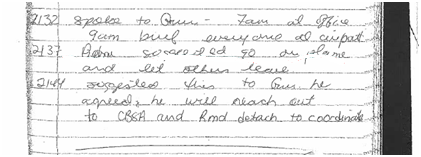 2132 spoke to Gus - 7am at office
9am brief everyone at airport
2137 Adam so and go on plane
and let others leave
2144 suggested this to Gus he
agreed, he will reach out
to CBSA and Rmd detach to coordinate